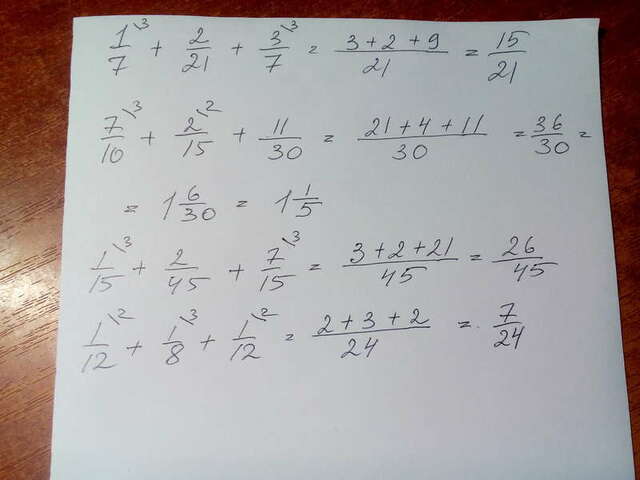 1\3/7 + 2/21 + 3\3/7 = 3+2+9/21 = 15/21
7\3/10 + 2\2/15 + 11/30 = 21+4+11/30 = 36/30 =
= 1 6/30 = 1 1/5
1\3/15 + 2/45 + 7\3/15 = 3+2+21/45 = 26/45
1\2/12 + 1\3/8 + 1\2/12 = 2+3+2/24 = 7/24